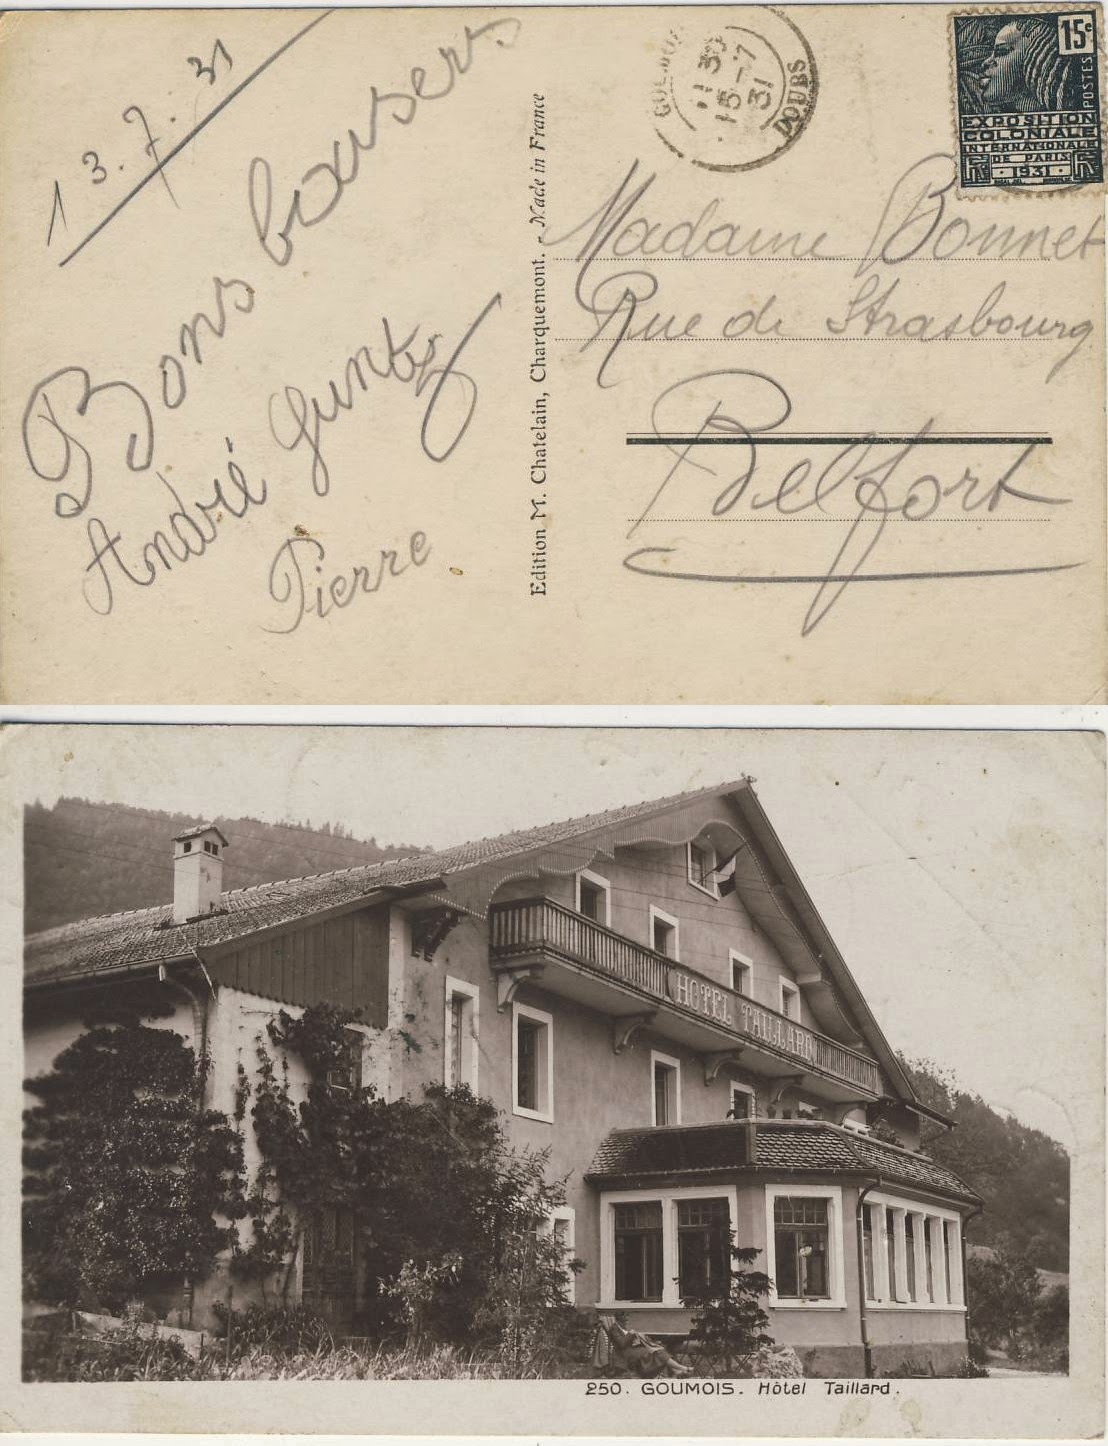 13.7.31
Bons baisers
André Guntz
Pierre
Edition M. Chatelain, Charquemont. - Made in France
11 30
15-7
31
DOUBS
15c
POSTES
EXPOSITION
COLONIALE
INTERNATIONALE
DE PARIS
1931
Madame Bonnet
Rue de Strasbourg
Belfort
HOTEL TAILLARD
250. GOUMOIS. Hôtel Taillard.